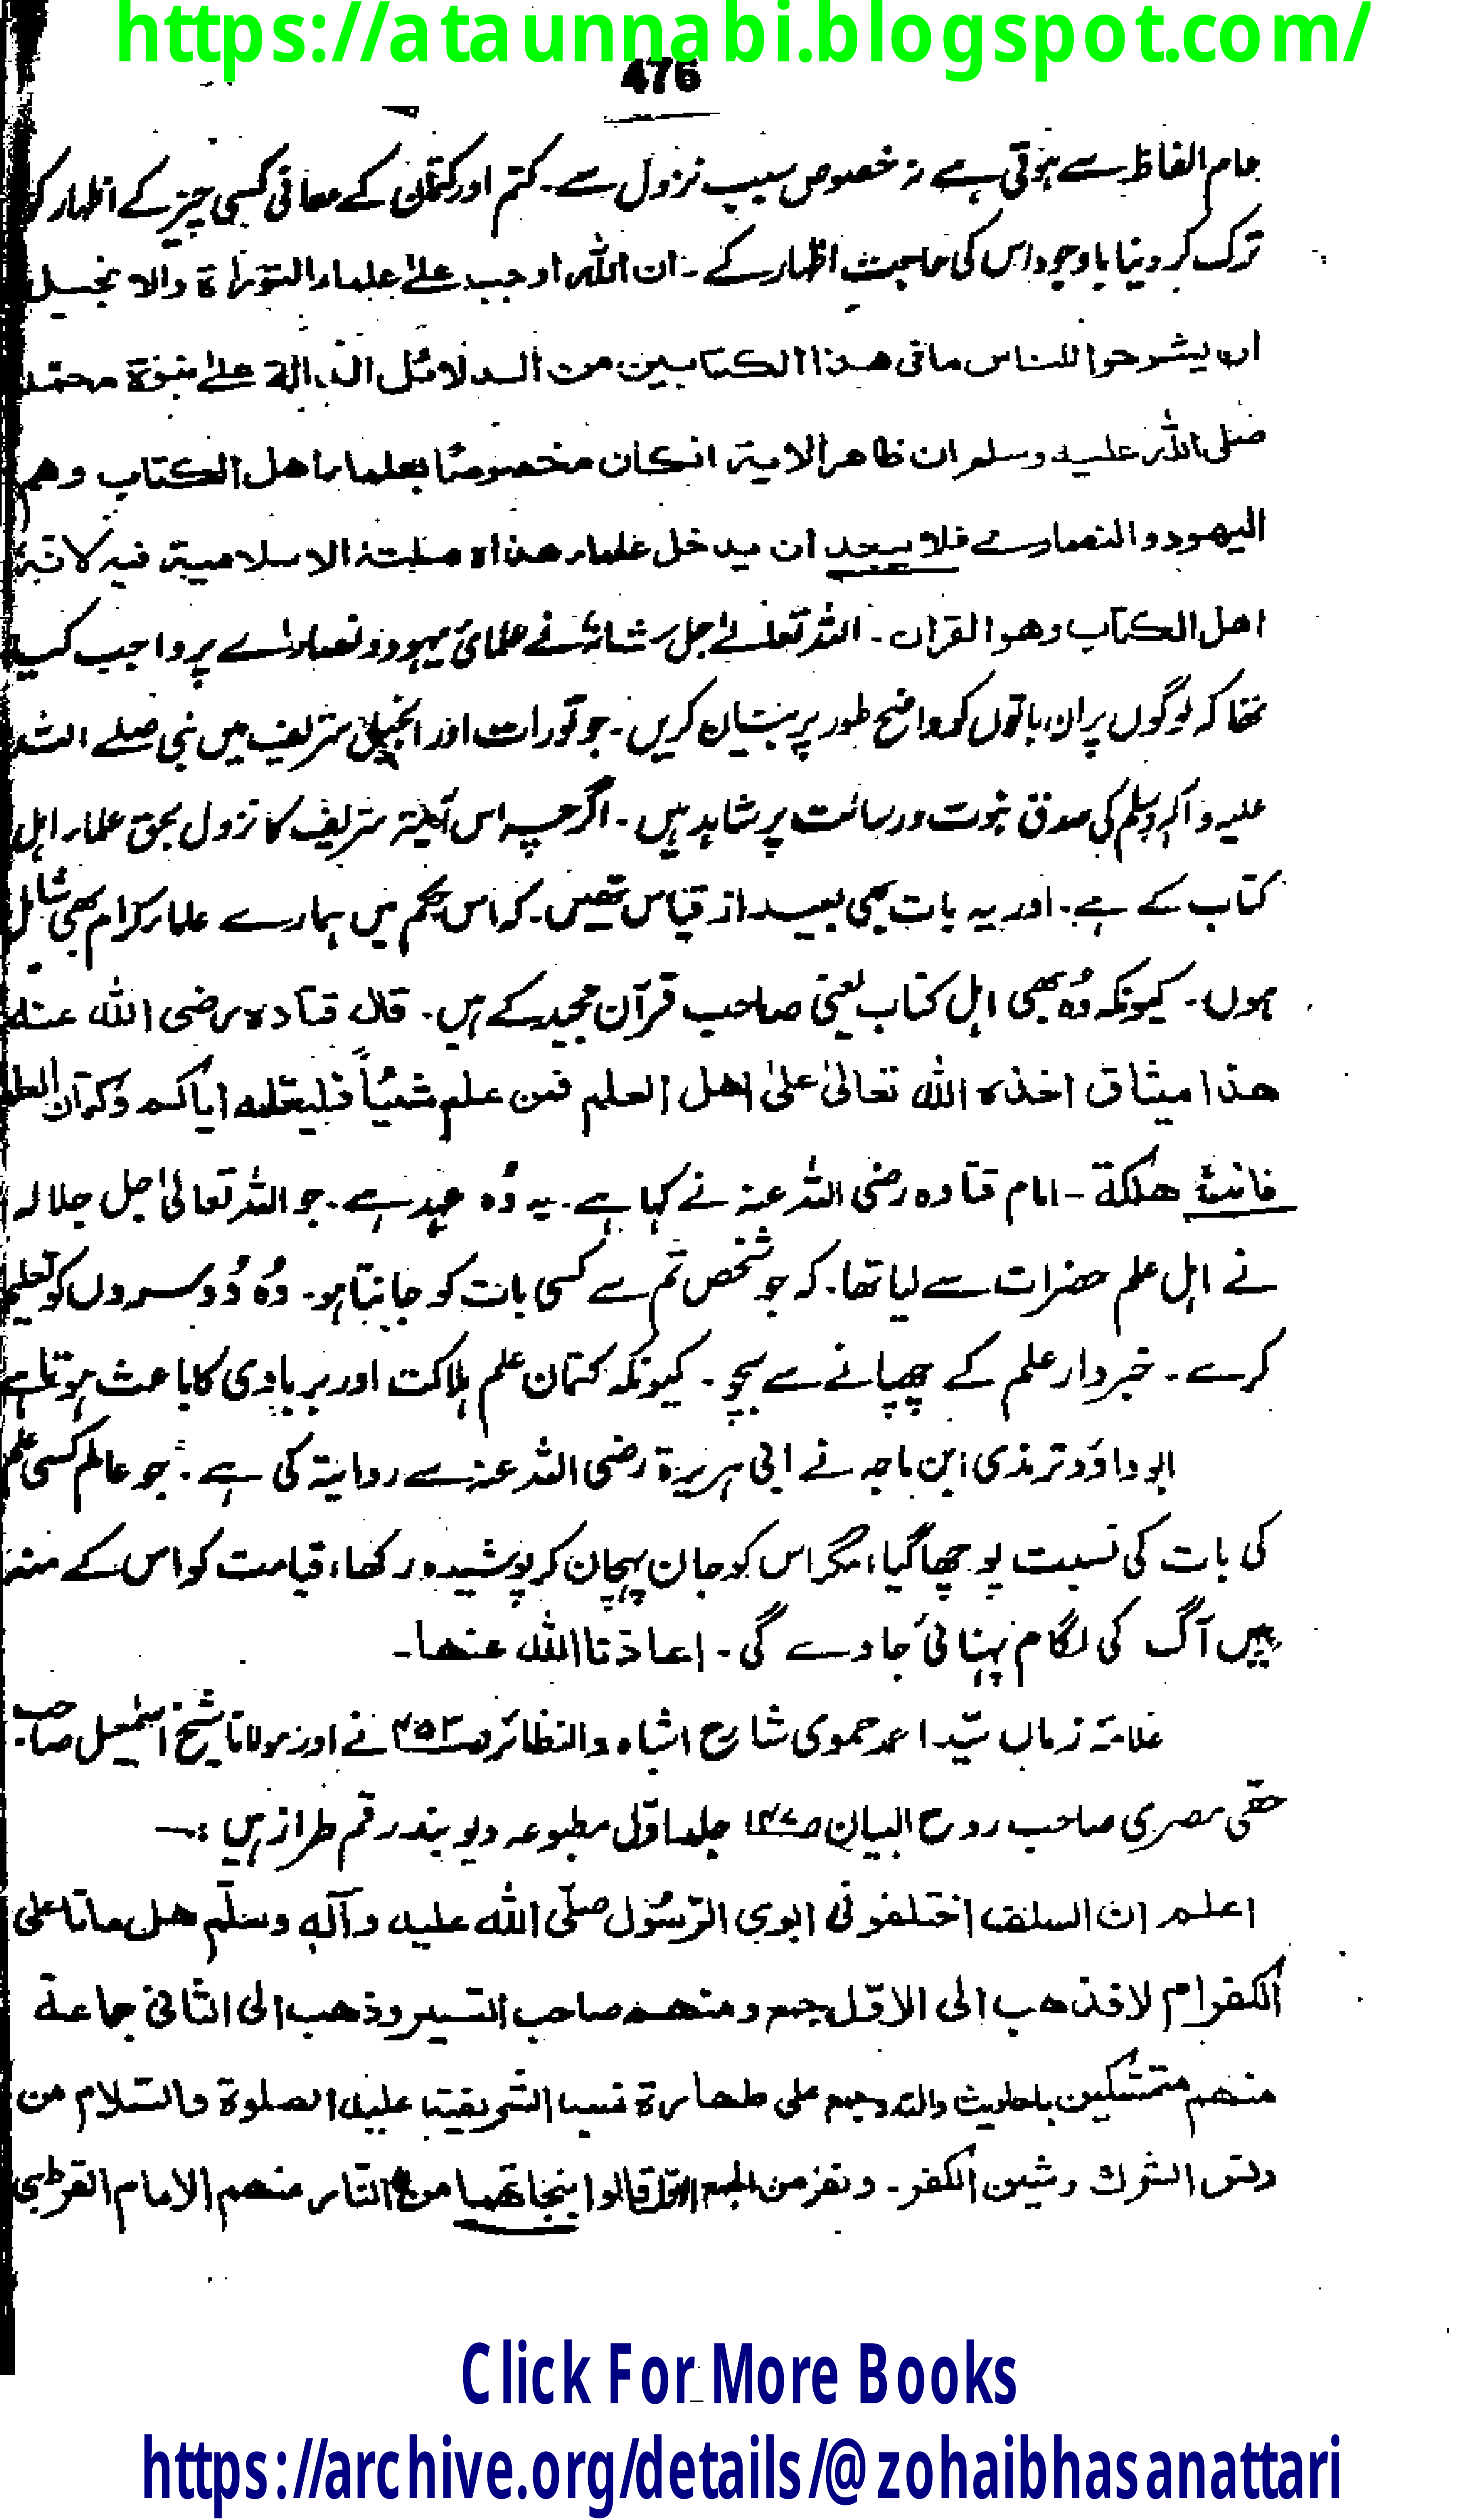 https://ataunnabi.blogspot.com/
476
عام الفاظ سے ہوتی ہے نہ خصوص سبب نزول سے۔ کتم اور کتمان کے معانی کسی چیز کے اظہار کو
ترک کر دینا باوجود اس کی حاجت اظہار کے۔ ان اللہ اوجب علیٰ علماء التوراة والانجیل
ان یشرحوا للناس مافی ھذا الکتابین من الدلائل الدالة علیٰ نبوة محمّد
صلی اللہ علیہ وسلم ان ظاھر الایة انکان مخصوصًا بعلماء اھل الکتاب وھم
الیھود والنصاریٰ فلا یبعد ان یدخل علماء ھذاہ ملّتہ الاسلامیة فیہ لانّہ
اھل الکتاب وھو القران۔ اللہ تعالےٰ جل شانہٗ نے علمائے یہود ونصاراے پر واجب کیا
تھا کہ لوگوں پر ان باتوں کو واضح طور پر بیان کریں۔ جو تورات اور انجیل شریف میں نبی صلے اللہ
علیہ وآلہ وسلم کی صدق نبوت ورسالت پر شاہد ہیں۔ اگرچہ اس آیۃ شریف کا نزول بحق علماء اہل
کتاب کے ہے۔ اور یہ بات بھی بعید از قیاس نہیں۔ کہ اس حکم میں ہمارے علماء کرام بھی شامل
ہوں۔ کیونکہ وُہ بھی اہل کتاب یعنی صاحب قرآن مجید کے ہیں۔ قال قتادہ رضی اللہ عنہ
ھذا میثاق اخذہ اللہ تعالیٰ علیٰ اھل العلم فمن علم شیئاً فلیعلمہ ایاکم وکتمان العلم
فانہٗ ھلکة - امام قتادہ رضی اللہ عنہ نے کہا ہے۔ یہ وُہ عہد ہے۔ جو اللہ تعالیٰ جل جلالہ
نے اہل علم حضرات سے لیا تھا۔ کہ جو شخص تم سے کسی بات کو جانتا ہو۔ وُہ دُوسروں کو تعلیم
کرے۔ خبردار علم کے چھپانے سے بچو۔ کیونکہ کتمان علم ہلاکت اور بربادی کا باعث ہوتا ہے
ابو داؤد ترمذی ابن ماجہ نے ابی ہریرة رضی اللہ عنہ سے روایۃ کی ہے۔ جو عالم کسی علم
کی بات کی نسبت پوچھا گیا، مگر اس کو جان پہچان کر پوشیدہ رکھا، قیامت کو اس کے منہ
میں آگ کی لگام پہنائی جاوے گی۔ اعاذنا اللہ عنھا۔
علامۃ زماں سیّد احمد حموی شارح اشباہ والنظائر ص۴۵۳ نے اور مولانا شیخ اسمٰعیل صاحب
حقی مصری صاحب روح البیان ص۱۴۷ جلد اوّل مطبوعہ دیوبند رقم طراز ہیں :۔
اعلم ان السلف اختلفو فی ابوی الرّسُول صلّی اللہ علیہ وآلہٖ وسلّم ھل ماتا علی
الکفر ام لا فذھب الی الاوّل جمع ومنھم صاحب التسیر وذھب الی الثانی جماعة
منھم متمسّکین بالدلیل علی طھارة نسب الشریف علیہ الصلوة والسّلام من
دنس الشرك وشین الکفر۔ ونفر من الجمع الاوّل قالوا بنجاتھما من النّار منھم الامام القرطبی
Click For More Books
https://archive.org/details/@zohaibhasanattari